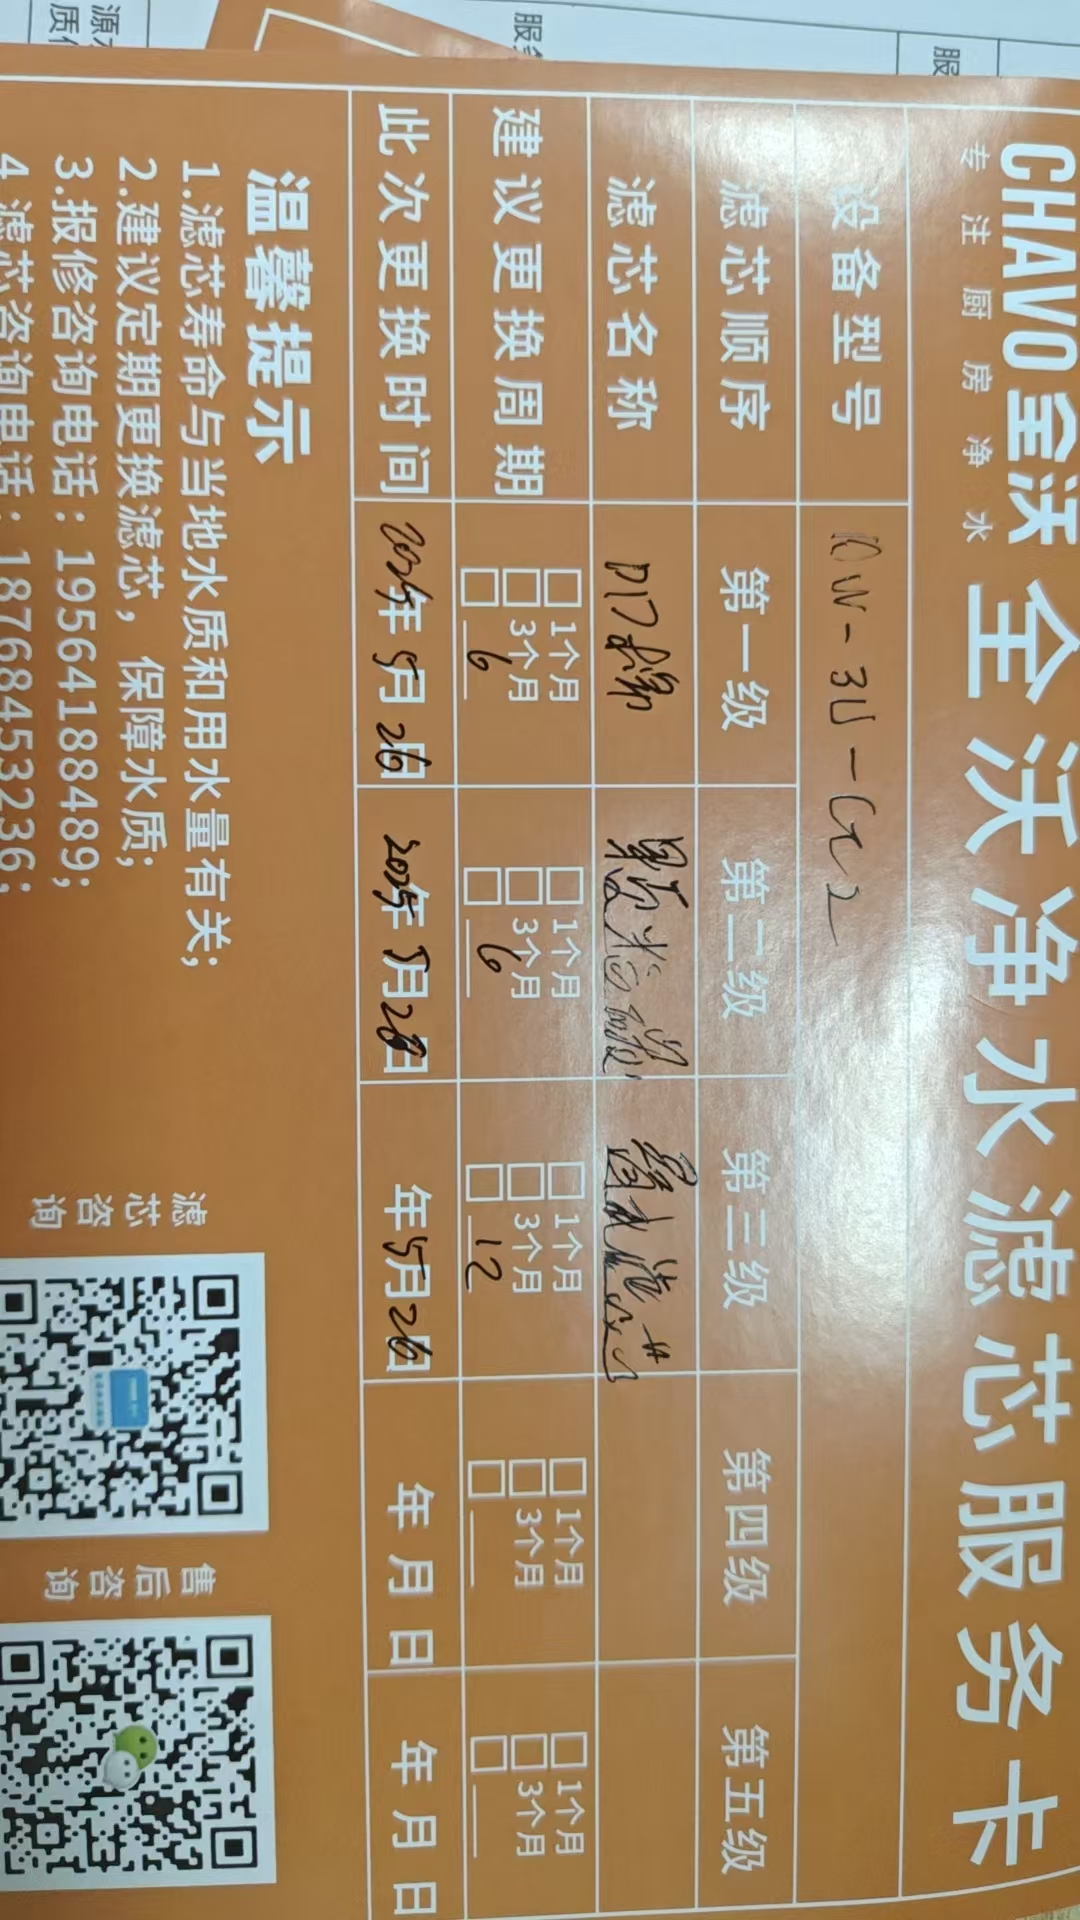 CHAVO全沃 全沃净水滤芯服务卡
专注厨房净水
设备型号
滤芯顺序 第一级 第二级 第三级 第四级 第五级
滤芯名称
建议更换周期 □1个月 □1个月 □1个月 □1个月 □1个月
□3个月 □3个月 □3个月 □3个月 □3个月
□ 6 □ 6 □ 12 □ □
此次更换时间 2025年5月26日 2025年5月28日 年5月26日 年 月 日 年 月 日
温馨提示
1.滤芯寿命与当地水质和用水量有关；
2.建议定期更换滤芯，保障水质；
3.报修咨询电话：19564188489；
4.滤芯咨询电话：18768453236；
滤芯咨询
售后咨询